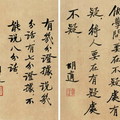 做學問要在不疑處有
疑待人要在有疑處
不疑
胡適
有幾分證據說幾
分話有七分證據不
能說八分話